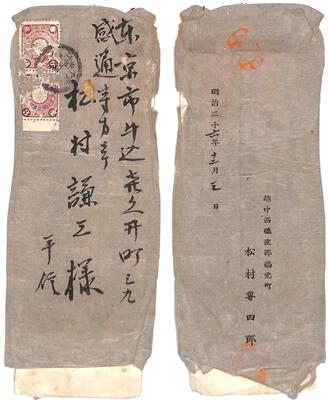 東京市牛込喜久井町三九
感通寺方ニ
松村謙三様
平信
明治三十六年十一月三日
越中西礪波郡福光町
松村専四郎